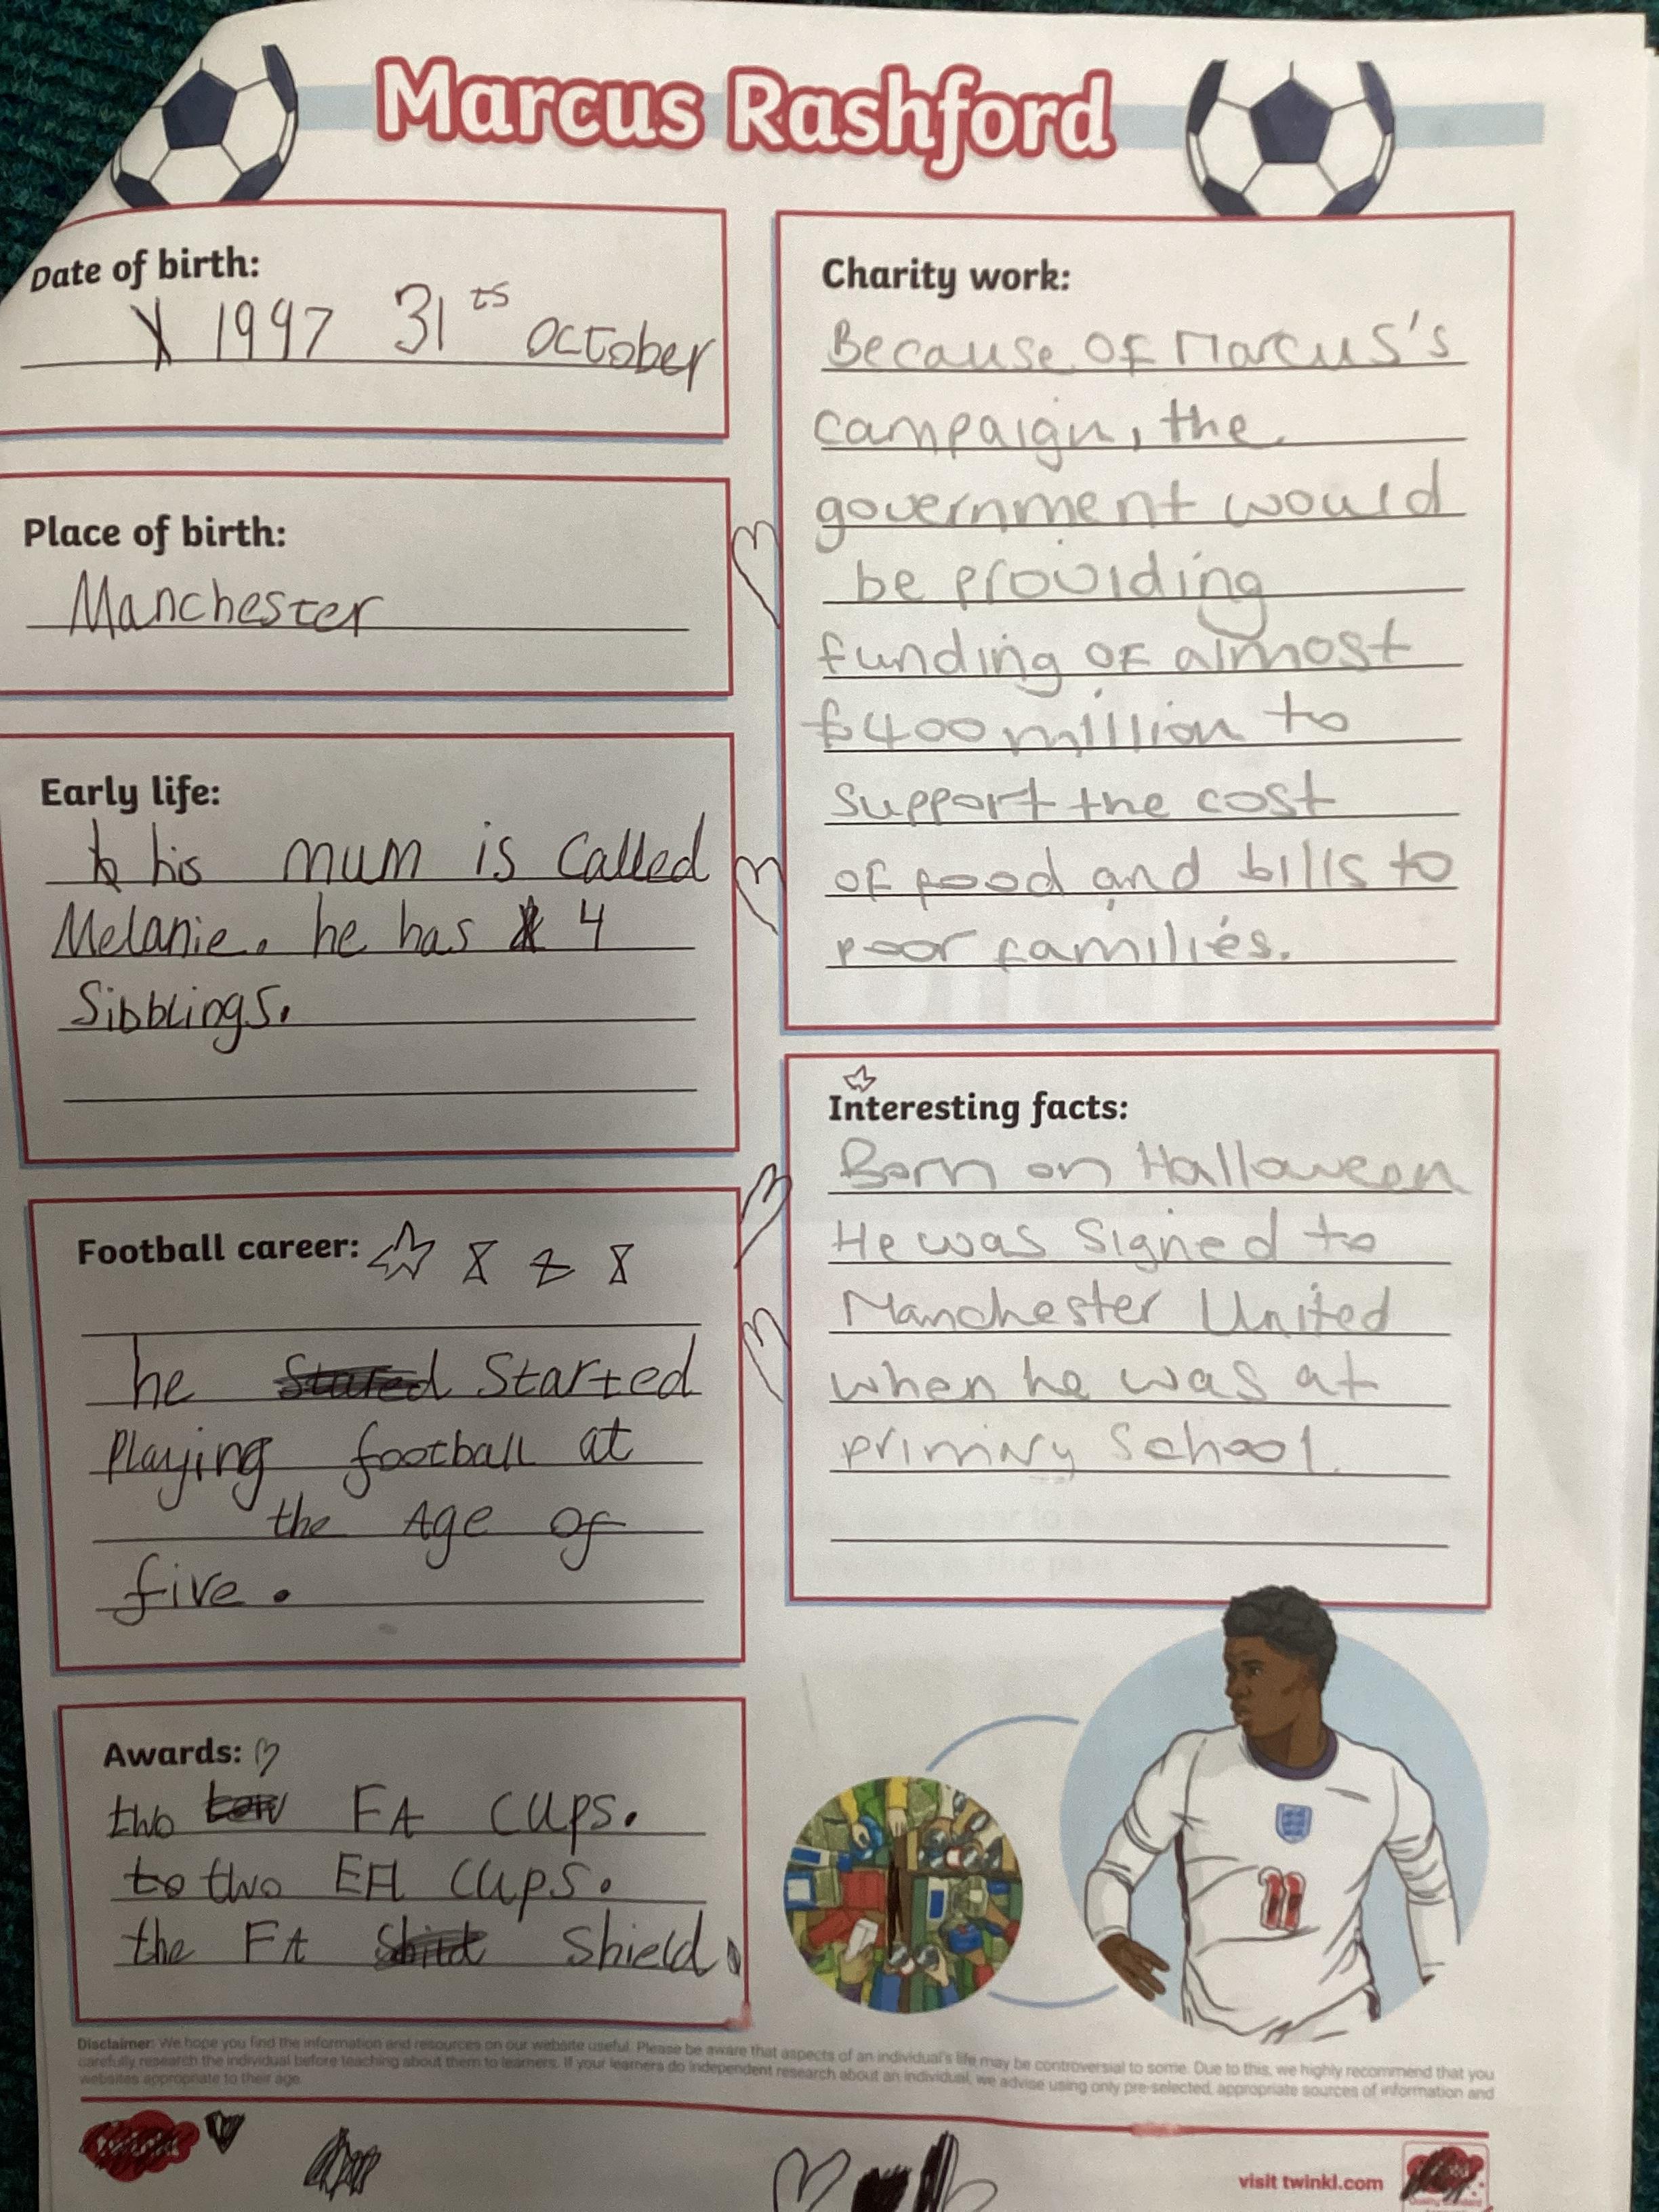 Marcus Rashford
Date of birth:
1997 31ts October
Place of birth:
Manchester
Early life:
his mum is called
Melanie. he has 4
Sibblings.
Football career:
he Started
Playing football at
the Age of
five.
Awards:
two FA cups.
two EFL cups.
the FA Shield.
Charity work:
Because of Marcus's
campaign, the
government would
be providing
funding of almost
£400 million to
support the cost
of food and bills to
poor families.
Interesting facts:
Born on Halloween
He was signed to
Manchester United
when he was at
primary School.
11
Disclaimer: We hope you find the information and resources on our website useful. Please be aware that aspects of an individual's life may be controversial to some. Due to this, we highly recommend that you
carefully research the individual before teaching about them to learners. If your learners do independent research about an individual, we advise using only pre-selected, appropriate sources of information and
websites appropriate to their age.
visit twinkl.com